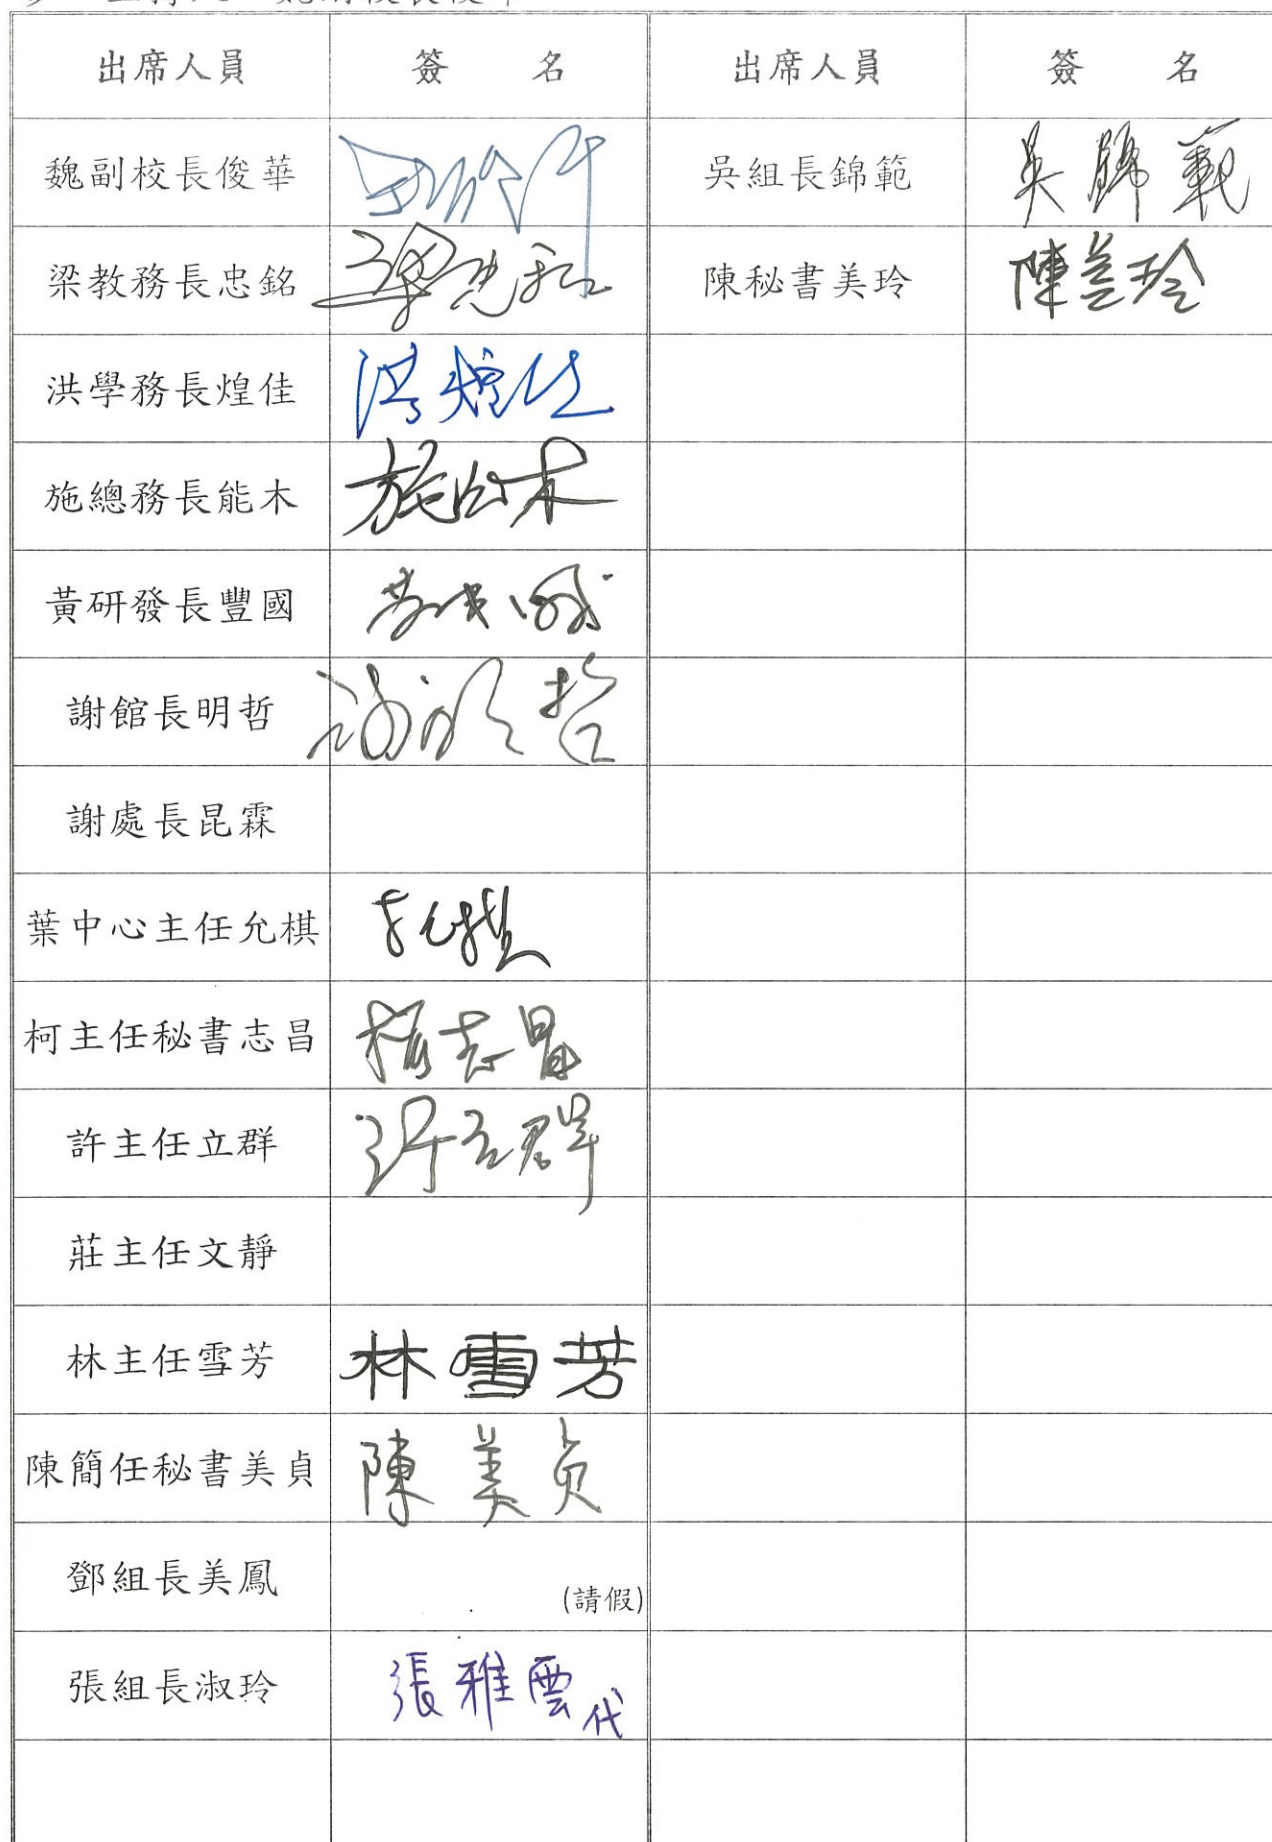 出席人員 簽 名 出席人員 簽 名
魏副校長俊華 吳組長錦範 吳錦範
梁教務長忠銘 梁忠銘 陳秘書美玲 陳美玲
洪學務長煌佳 洪煌佳
施總務長能木 施能木
黃研發長豐國
謝館長明哲 謝明哲
謝處長昆霖
葉中心主任允棋
柯主任秘書志昌 柯志昌
許主任立群 許立群
莊主任文靜
林主任雪芳 林雪芳
陳簡任秘書美貞 陳美貞
鄧組長美鳳 (請假)
張組長淑玲 張雅雲代